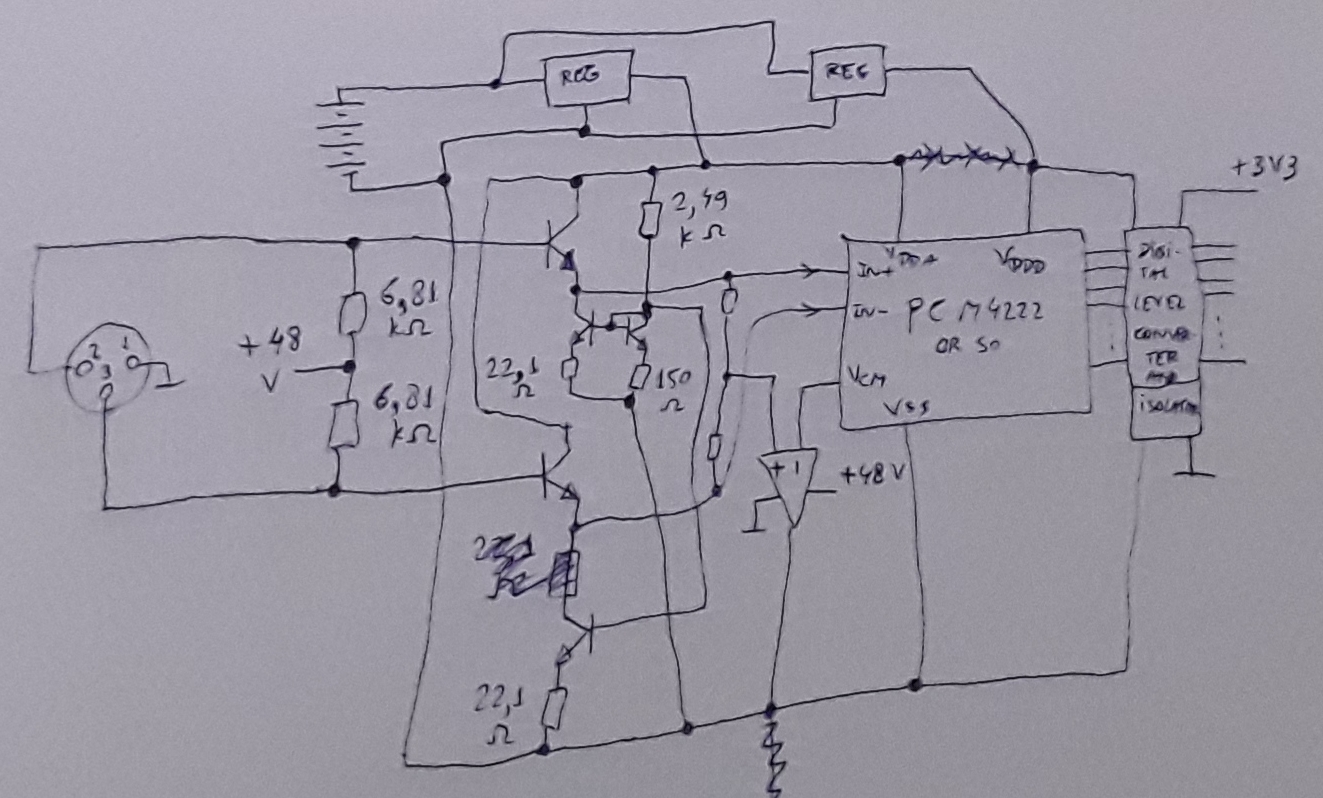 REG
REG
+3V3
2,49
kΩ
6,81
kΩ
+48
V
6,81
kΩ
2
1
3
22,1
Ω
150
Ω
IN+
VDDA
VDDD
IN-
PCM4222
OR SO
VCM
VSS
DIGI-
TAL
LEVEL
CONVER
TER
AND
ISOLATOR
+1
+48V
22,1
Ω